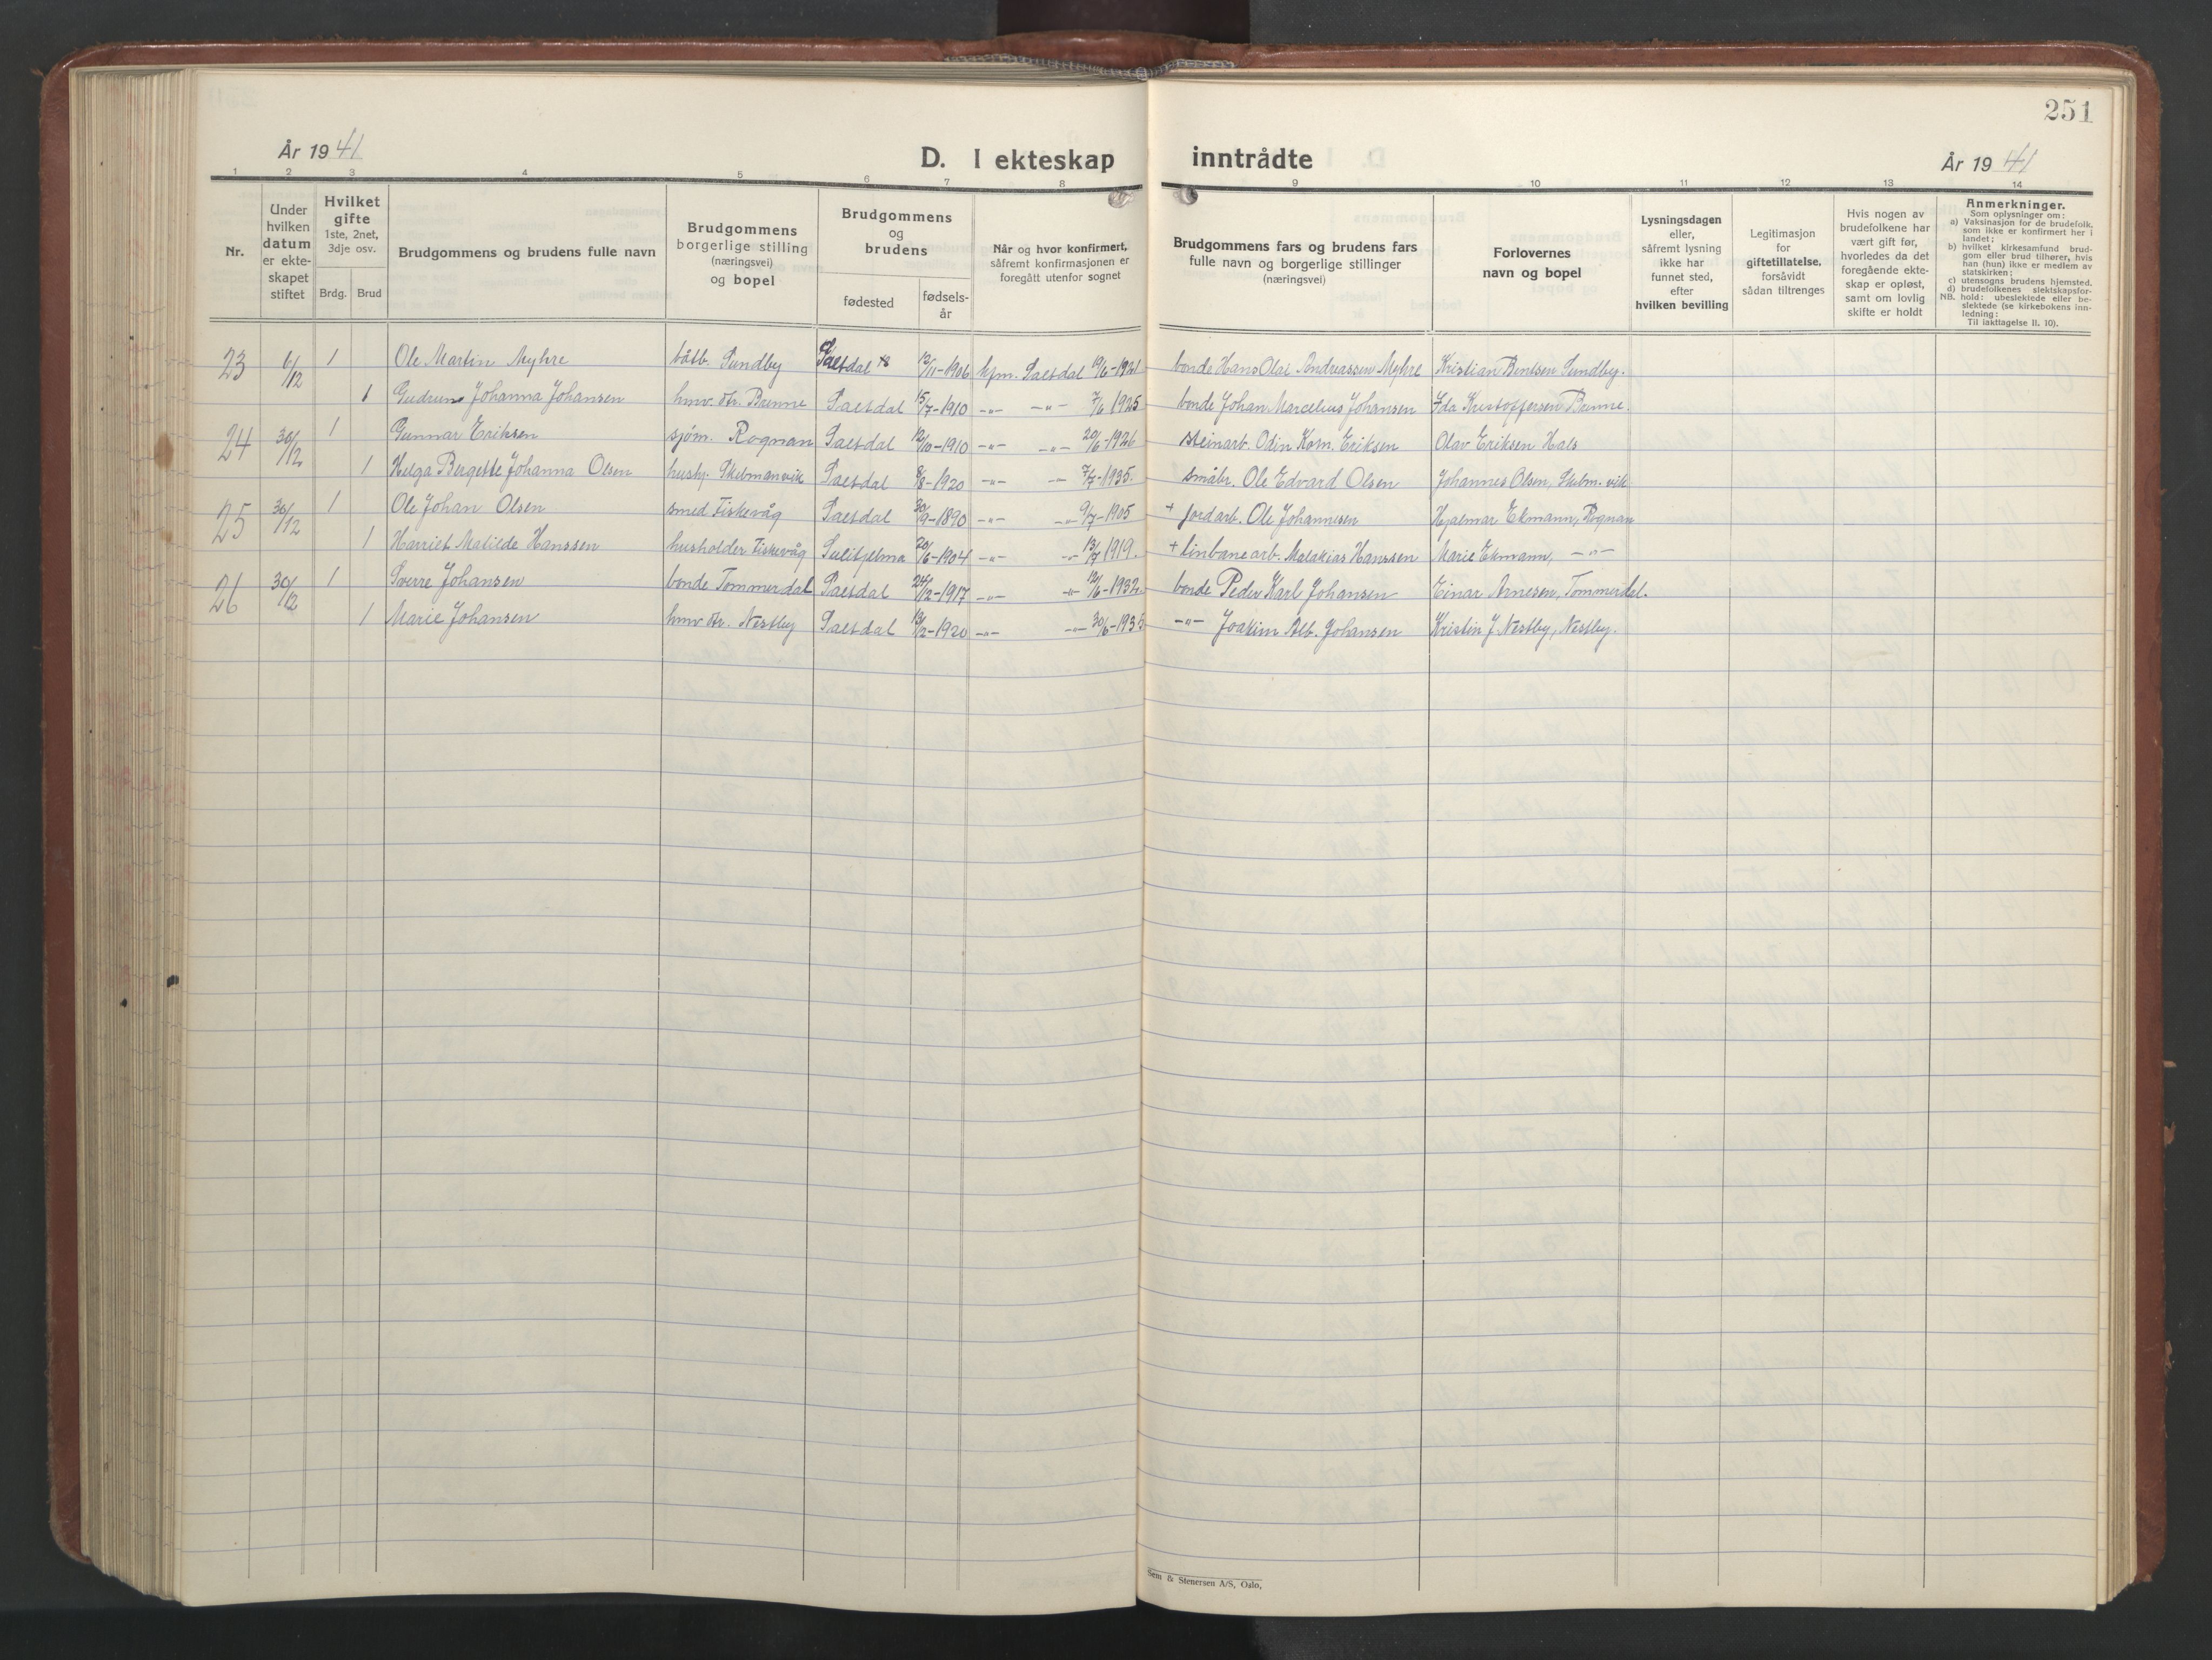 251
År 1941
D. I ekteskap inntrådte
År 1941
1 2 3 4 5 6 7 8 9 10 11 12 13 14
Nr.
Under hvilken datum er ekte- skapet stiftet
Hvilket gifte 1ste, 2net, 3dje osv.
Brdg. Brud
Brudgommens og brudens fulle navn
Brudgommens borgerlige stilling (næringsvei) og bopel
Brudgommens og brudens
fødested
fødsels- år
Når og hvor konfirmert, såfremt konfirmasjonen er foregått utenfor sognet
Brudgommens fars og brudens fars fulle navn og borgerlige stillinger (næringsvei)
Forlovernes navn og bopel
Lysningsdagen eller, såfremt lysning ikke har funnet sted, efter hvilken bevilling
Legitimasjon for giftetillatelse, forsåvidt sådan tiltrenges
Hvis nogen av brudefolkene har vært gift før, hvorledes da det foregående ekte- skap er opløst, samt om lovlig skifte er holdt
Anmerkninger.
Som oplysninger om:
a) Vaksinasjon for de brudefolk, som ikke er konfirmert her i landet;
b) hvilket kirkesamfund brud- gom eller brud tilhører, hvis han (hun) ikke er medlem av statskirken;
c) utensogns brudens hjemsted.
d) brudefolkenes slektskapsfor- hold: ubeslektede eller be- slektede (se kirkebokens inn- ledning:
NB. Til iakttagelse ll. 10).
23 6/12 1 Ole Martin Myhre båtb. Sundby Saltdal 12/11-1906 hjm. Saltdal 19/6-1921 bonde Hans Olai Andreassen Myhre Kristian Bentsen Sundby.
1 Gudrun Johanna Johansen hmv. dtr. Brenne Saltdal 15/7-1910 -"- -"- 7/6 1925 bonde Johan Marcelius Johansen Ida Kristoffersen Brenne.
24 30/12 1 Gunnar Eriksen sjøm. Rognan Saltdal 12/10-1910 -"- -"- 20/6-1926 steinarb. Odin Korn. Eriksen Olav Eriksen Hals
1 Helga Bergette Johanna Olsen hushj. Skelmanvik Saltdal 8/8-1920 -"- -"- 7/7-1935. småbr. Ole Edvard Olsen Johannes Olsen, Skelm.vik
25 30/12 1 Ole Johan Olsen smed Fiskevåg Saltdal 30/9-1890 -"- -"- 9/7-1905 + jordarb. Ole Johannesen Hjalmar Ekmann, Rognan
1 Harriet Matilde Hanssen husholder Fiskevåg Sulitjelma 20/6-1904 -"- -"- 13/7 1919. + linbanearb. Malakias Hanssen Marie Ekmann, -"-
26 30/12 1 Sverre Johansen bonde Tømmerdal Saltdal 24/12-1917 -"- -"- 12/6-1932. bonde Peder Karl Johansen Einar Arnesen, Tømmerdal.
1 Marie Johansen hmv dtr. Nestby Saltdal 13/2-1920 -"- -"- 30/6-1935 -"- Joakim Alb. Johansen Kristin J Nestby, Nestby.
Sem & Stenersen A/S, Oslo,